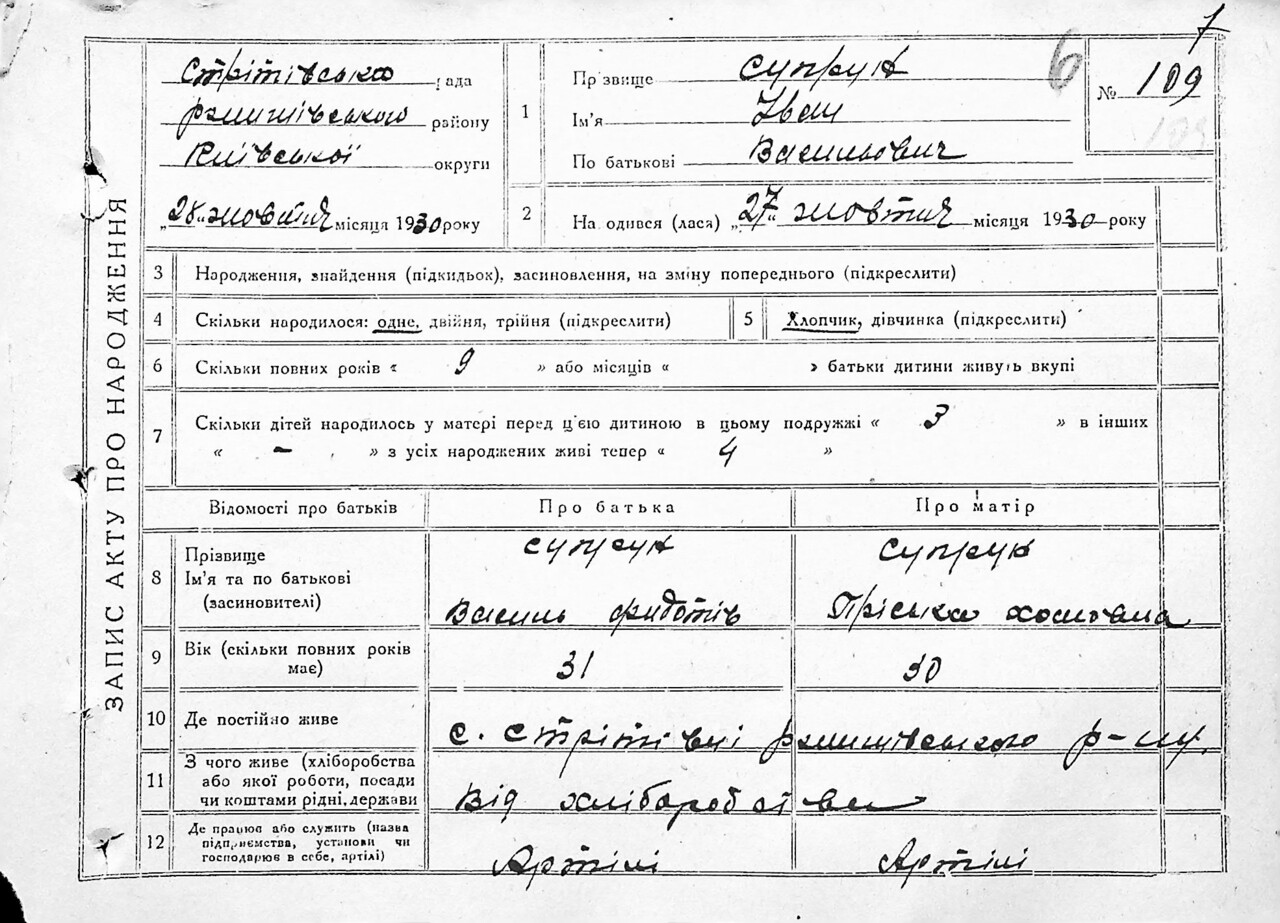 7
6
№ 109
109
ЗАПИС АКТУ ПРО НАРОДЖЕННЯ
Стрітівська рада
району
Київської округи
„28„ жовтня місяця 1930 року
1
Прізвище Супрун
Ім'я Іван
По батькові Васильович
2
На одився (лася) „27„ жовтня місяця 1930 року
3 Народження, знайдення (підкидьок), засиновлення, на зміну попереднього (підкреслити)
4 Скільки народилося: одне, двійня, трійня (підкреслити)
5 Хлопчик, дівчинка (підкреслити)
6 Скільки повних років « 9 » або місяців « » батьки дитини живуть вкупі
7 Скільки дітей народилось у матері перед ц'єю дитиною в цьому подружжі « 3 » в інших
« – » з усіх народжених живі тепер « 4 »
Відомості про батьків Про батька Про матір
8 Прізвище Супрун Супрун
Ім'я та по батькові
(засиновителі) Василь Федотів Пріська
9 Вік (скільки повних років
має) 31 30
10 Де постійно живе с. Стрітівці р-ну.
11 З чого живе (хліборобства
або якої роботи, посади
чи коштами рідні, держави Від хліборобства
12 Де працює або служить (назва
підприємства, установи чи
господарює в себе, артілі) Артілі Артілі